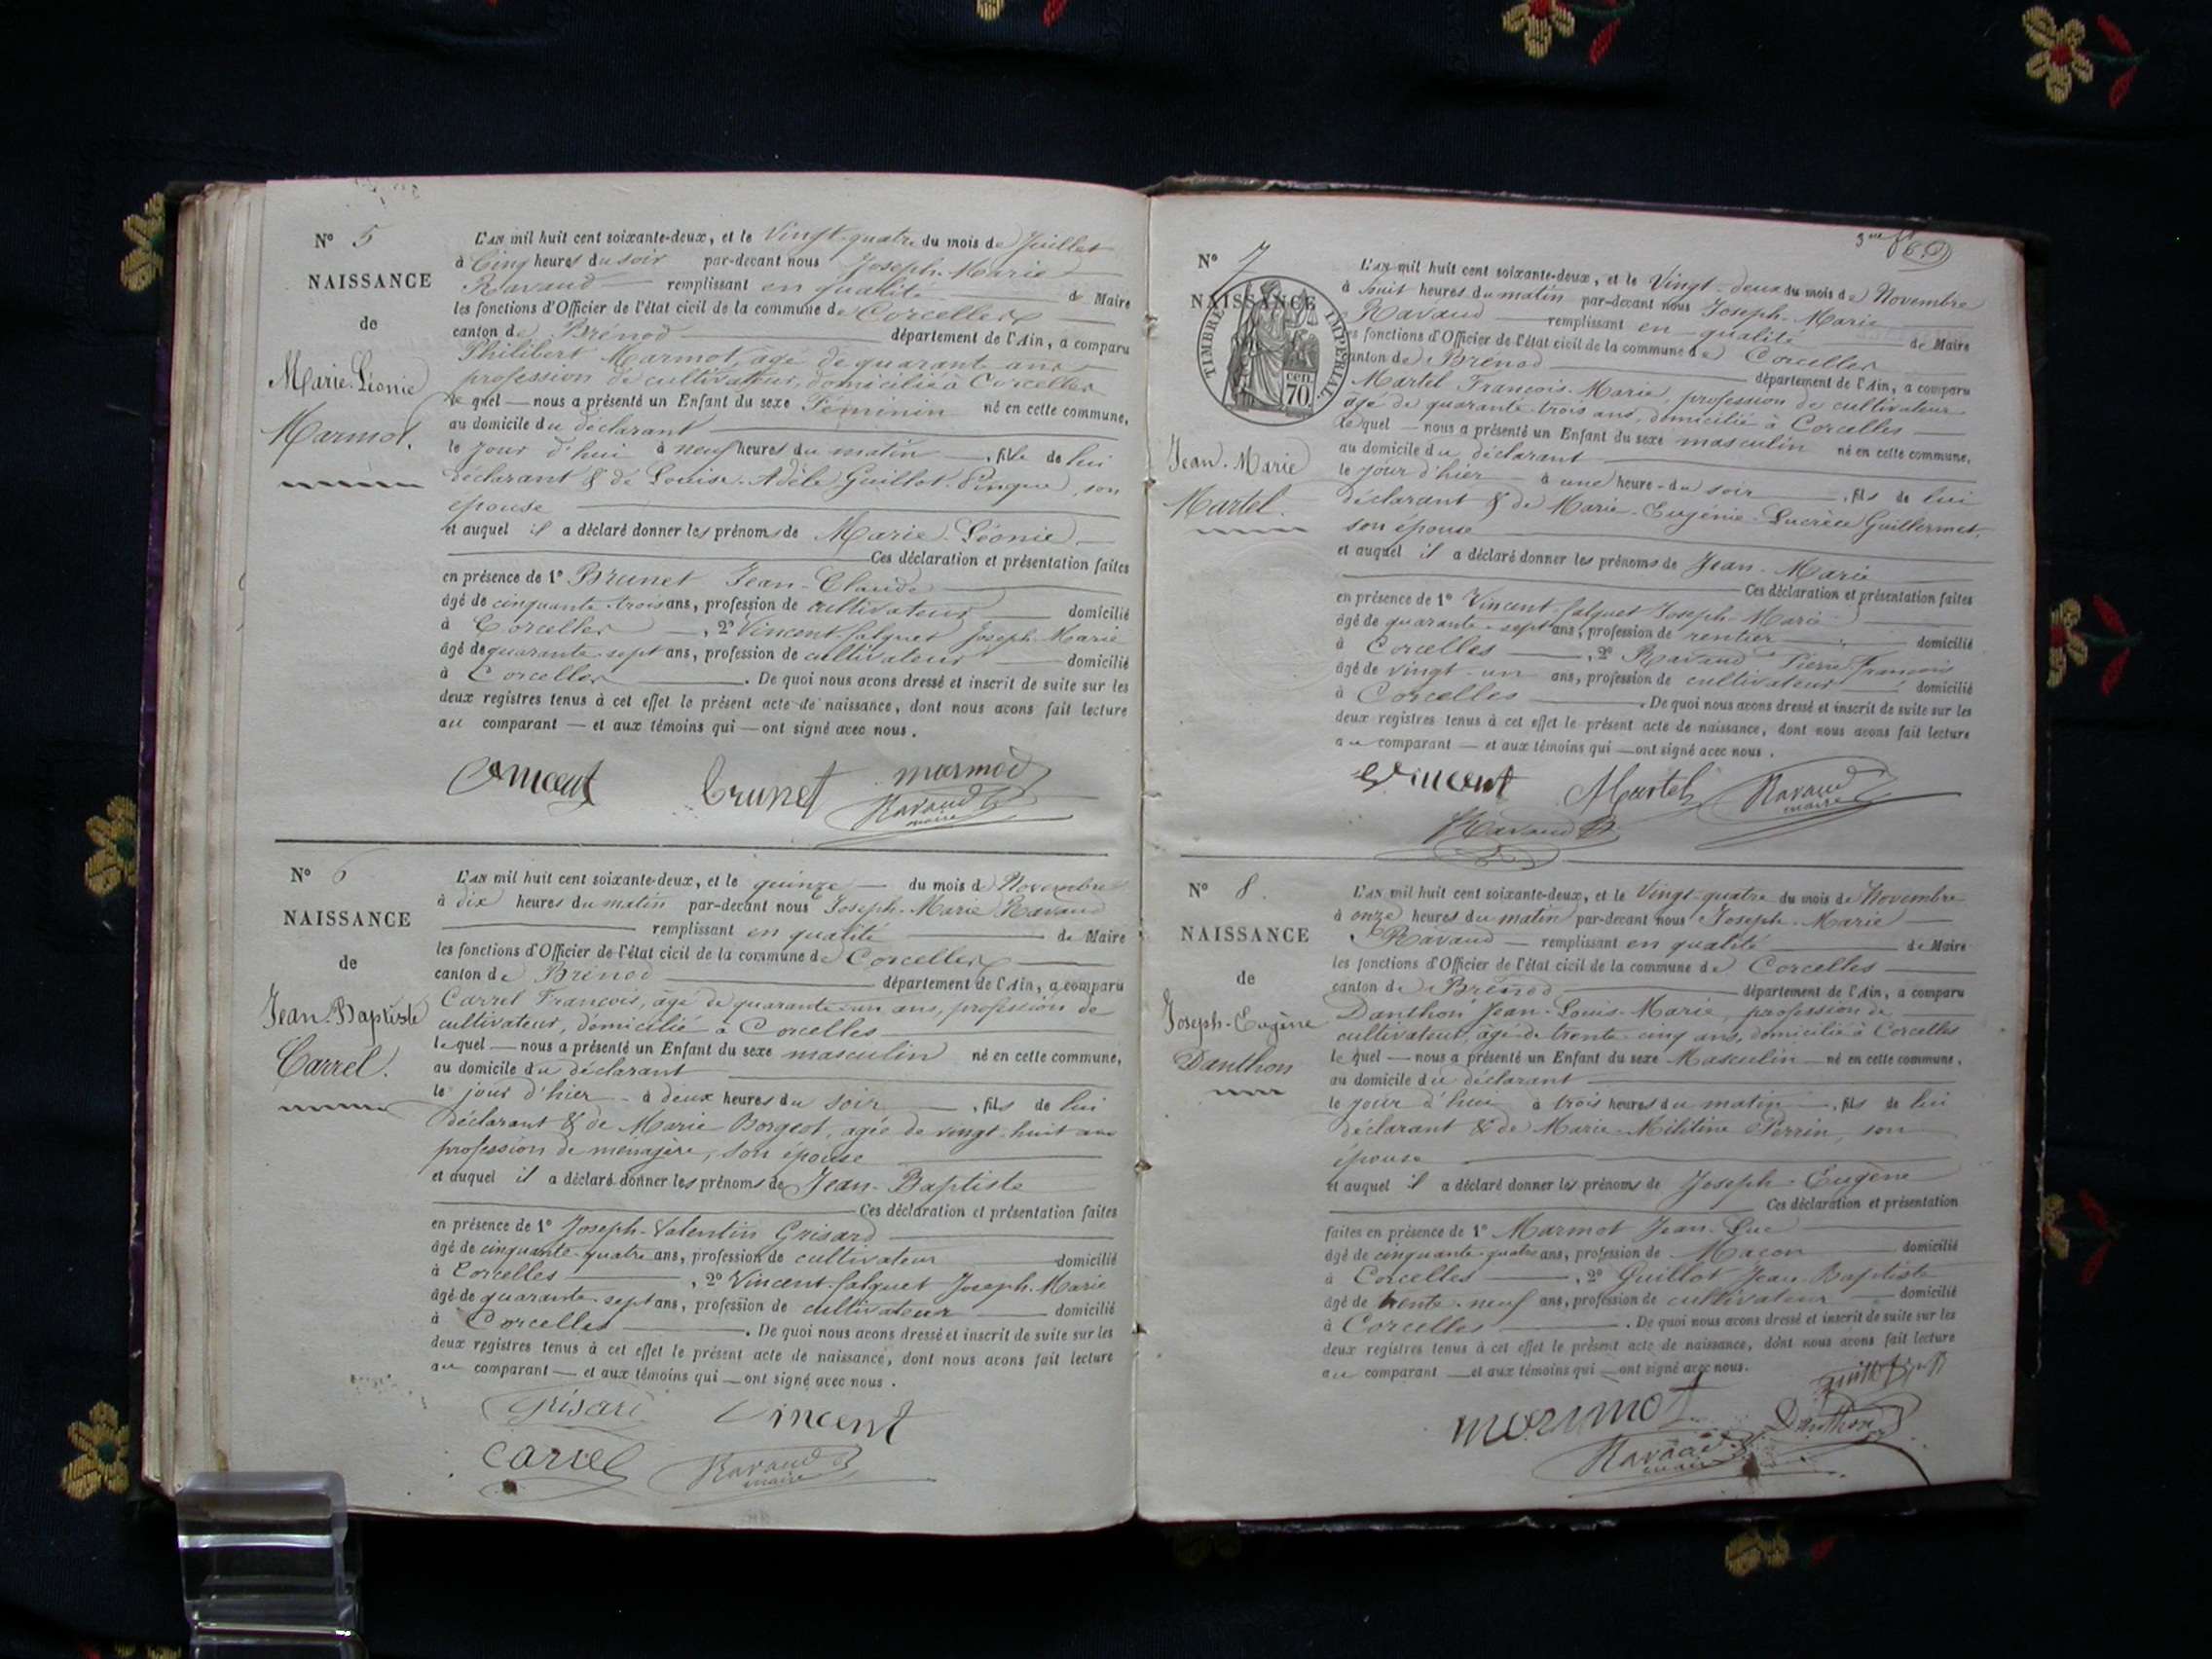 N° 5
NAISSANCE
de
Marie-Léonie
Marmot.
L'AN mil huit cent soixante-deux, et le Vingt-quatre du mois de Juillet
à Cinq heures du soir par-devant nous Joseph-Marie
Ravaud remplissant en qualité de Maire
les fonctions d'Officier de l'état civil de la commune de Corcelles
canton de Brénod département de l'Ain, a comparu
Philibert Marmot, âgé de quarante ans
profession de cultivateur, domicilié à Corcelles
le quel — nous a présenté un Enfant du sexe Féminin né en cette commune,
au domicile du déclarant
le jour d'hui à neuf heures du matin, fille de lui
déclarant & de Louise-Adèle Guillot-Pingue, son
épouse
et auquel il a déclaré donner les prénoms de Marie-Léonie
Ces déclaration et présentation faites
en présence de 1° Brunet Jean-Claude
âgé de cinquante-trois ans, profession de cultivateur domicilié
à Corcelles, 2° Vincent-falquet Joseph-Marie
âgé de quarante-sept ans, profession de cultivateur domicilié
à Corcelles. De quoi nous avons dressé et inscrit de suite sur les
deux registres tenus à cet effet le présent acte de naissance, dont nous avons fait lecture
au comparant — et aux témoins qui — ont signé avec nous.
Vincent brunet marmot
Ravaud
maire
N° 6
NAISSANCE
de
Jean-Baptiste
Carrel.
L'AN mil huit cent soixante-deux, et le quinze — du mois de Novembre
à dix heures du matin par-devant nous Joseph-Marie Ravaud
remplissant en qualité de Maire
les fonctions d'Officier de l'état civil de la commune de Corcelles
canton de Brénod département de l'Ain, a comparu
Carrel François, âgé de quarante-un ans, profession de
cultivateur, domicilié à Corcelles
le quel — nous a présenté un Enfant du sexe masculin né en cette commune,
au domicile du déclarant
le jour d'hier à deux heures du soir, fils de lui
déclarant & de Marie Borgeot, agée de vingt-huit ans
profession de ménagère, son épouse
et auquel il a déclaré donner les prénoms de Jean-Baptiste
Ces déclaration et présentation faites
en présence de 1° Joseph-Valentin Grisard
âgé de cinquante-quatre ans, profession de cultivateur domicilié
à Corcelles, 2° Vincent-falquet Joseph-Marie
âgé de quarante-sept ans, profession de cultivateur domicilié
à Corcelles. De quoi nous avons dressé et inscrit de suite sur les
deux registres tenus à cet effet le présent acte de naissance, dont nous avons fait lecture
au comparant — et aux témoins qui — ont signé avec nous.
Grisard Vincent
Carrel Ravaud
maire
N° 7
NAISSANCE
TIMBRE IMPERIAL
70 cen.
Jean-Marie
Martel.
L'AN mil huit cent soixante-deux, et le Vingt-deux du mois de Novembre
à huit heures du matin par-devant nous Joseph-Marie
Ravaud remplissant en qualité de Maire
les fonctions d'Officier de l'état civil de la commune de Corcelles
canton de Brénod département de l'Ain, a comparu
Martel François-Marie, profession de cultivateur
âgé de quarante-trois ans, domicilié à Corcelles
le quel — nous a présenté un Enfant du sexe masculin né en cette commune,
au domicile du déclarant
le jour d'hier à une heure du soir, fils de lui
déclarant & de Marie-Eugénie-Lucrèce Guillermet,
son épouse
et auquel il a déclaré donner les prénoms de Jean-Marie
Ces déclaration et présentation faites
en présence de 1° Vincent-falquet Joseph-Marie
âgé de quarante-sept ans, profession de rentier domicilié
à Corcelles, 2° Ravaud Pierre François
âgé de vingt-un ans, profession de cultivateur domicilié
à Corcelles. De quoi nous avons dressé et inscrit de suite sur les
deux registres tenus à cet effet le présent acte de naissance, dont nous avons fait lecture
au comparant — et aux témoins qui — ont signé avec nous.
Vincent Martel Ravaud
maire
Ravaud
N° 8.
NAISSANCE
de
Joseph-Eugène
Danthon
L'AN mil huit cent soixante-deux, et le Vingt-quatre du mois de Novembre
à onze heures du matin par-devant nous Joseph-Marie
Ravaud — remplissant en qualité de Maire
les fonctions d'Officier de l'état civil de la commune de Corcelles
canton de Brénod département de l'Ain, a comparu
Danthon Jean-Louis-Marie, profession de
cultivateur, âgé de trente-cinq ans, domicilié à Corcelles
le quel — nous a présenté un Enfant du sexe Masculin — né en cette commune,
au domicile du déclarant
le jour d'hui à trois heures du matin, fils de lui
déclarant & de Marie-Mélitine Perrin, son
épouse
et auquel il a déclaré donner les prénoms de Joseph-Eugène
Ces déclaration et présentation
faites en présence de 1° Marmot Jean-Luc
âgé de cinquante-quatre ans, profession de Maçon domicilié
à Corcelles, 2° Guillot Jean-Baptiste
âgé de trente-neuf ans, profession de cultivateur domicilié
à Corcelles. De quoi nous avons dressé et inscrit de suite sur les
deux registres tenus à cet effet le présent acte de naissance, dont nous avons fait lecture
au comparant — et aux témoins qui — ont signé avec nous.
marmot Danthon
Ravaud
maire